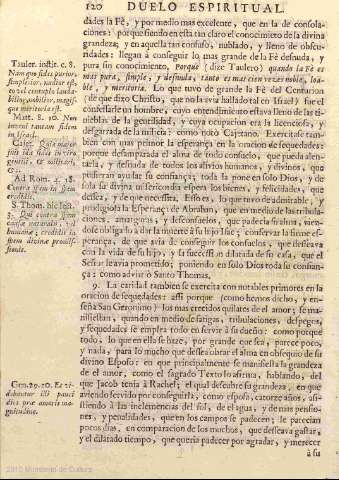 120 DUELO ESPIRITUAL
dades la Fè, y por medio mas excelente, que en la de consola-
ciones: porque siendo en esta tan claro el conocimiẽto de la divina
grandeza; y en aquella tan confuso, nublado, y lleno de obscu-
ridades: llegan à conseguir lo mas grande de la Fè desnuda, y
pura sin conocimiento, Porque (dize Taulero) quando la Fè es
mas pura, simple, y desnuda, tanto es mas cien vezes noble, loa-
ble, y meritoria. Lo que tuvo de grande la Fè del Centurion
(de que dixo Christo, que no la avia hallado tal en Israel) fue el
confessarle un hombre, cuyo entendimiento estava lleno de las ti-
nieblas de la gentilidad, y cuya ocupacion era la licenciosa, y
desgarrada de la milicia: como notò Cayetano. Exercitase tam-
bien con mas primor la esperança en la oracion de sequedades:
porque desamparada el alma de todo consuelo, que pueda alen-
tarla, y desnuda de todos los alivios humanos, y divinos, que
pudieran ayudar su confiança; toda la pone en solo Dios, y de
sola su divina misericordia espera los bienes, y felicidades, que
desea, y de que necessita. Esso es, lo que tuvo de admirable, y
prodigiosa la Esperança de Abrahan, que en medio de tribula-
ciones, amarguras, y desconsuelos, que padecia su alma, vien-
dose obligado à dar la muerte à su hijo Isac; conservò la firme es-
perança, de que avia de conseguir los consuelos, que deseava
con la vida de su hijo, y la succession dilatada de su casa, que el
Señor le avia prometido; poniendo en solo Dios toda su confian-
ça: como advirtiò Santo Thomas.
9. La caridad tambien se exercita con notables primores en la
oracion de sequedades: assi porque (como hemos dicho, y en-
seña San Geronimo) los mas crecidos quilates del amor; se ma-
nifiestan, quando en medio de fatigas, tribulaciones, despegos,
y sequedades se emplea todo en servir à su dueño: como porque
todo, lo que en ella se haze, por grande que sea, parece poco,
y nada, para lo mucho que desea obrar el alma en obsequio de su
divino Esposo: en que principalmente se manifiesta la grandeza
de el amor, como el sagrado Texto lo afirma, hablando, del
que Jacob tenia à Rachel; el qual descubre su grandeza, en que
aviendo servido por conseguirla, como esposa, catorze años, as-
sistiendo à las inclemencias del sol, de el agua, y de mas pensio-
nes, y penalidades, que en los campos se padecen; le parecian
pocos dias, en comparacion de los muchos, que deseava gastar,
y el dilatado tiempo, que queria padecer por agradar, y merecer
à su
Tauler. instit. c. 8.
Matt. 8. 10. Non
inveni tantam fidem
in Israel.
Ad Rom. 4. 18.
Contra spem in spem
credidit.
S. Thom. hic lect.
Gen. 29. 20. Et vi-
debantur illi pauci
dies præ amoris ma-
gnitudine.